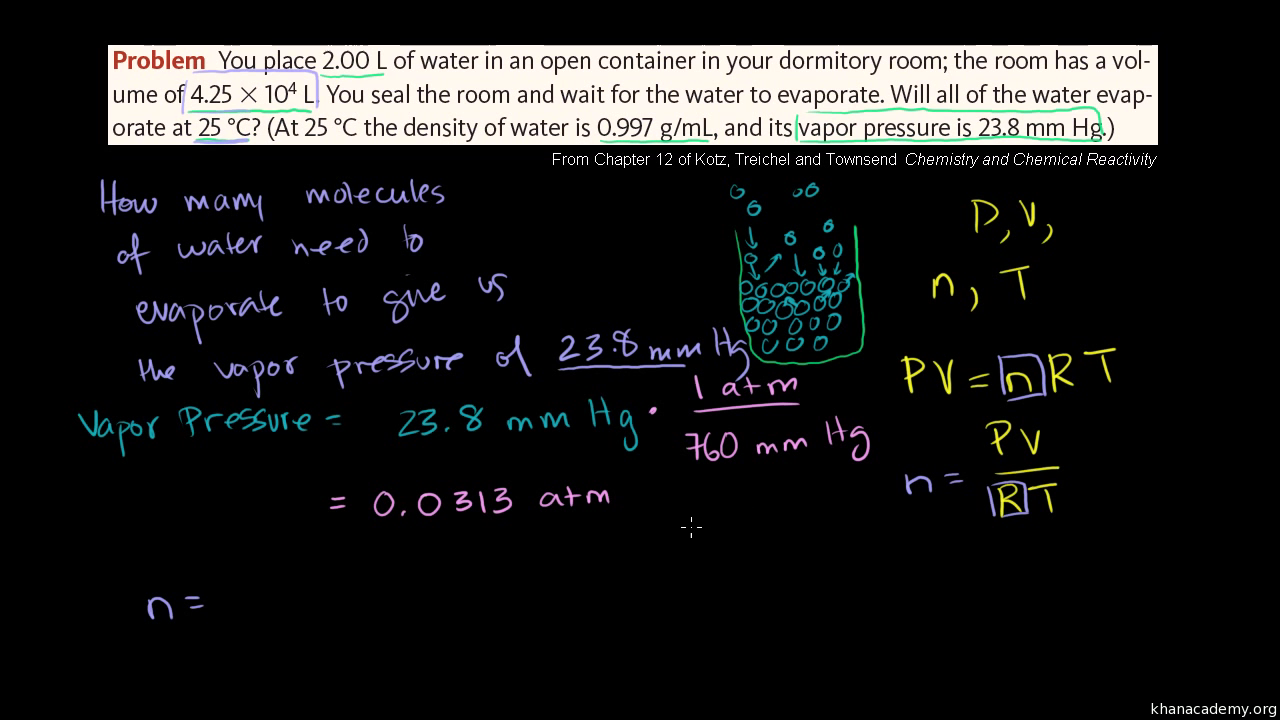 Problem You place 2.00 L of water in an open container in your dormitory room; the room has a vol-
ume of 4.25 × 10⁴ L. You seal the room and wait for the water to evaporate. Will all of the water evap-
orate at 25 °C? (At 25 °C the density of water is 0.997 g/mL, and its vapor pressure is 23.8 mm Hg.)
From Chapter 12 of Kotz, Treichel and Townsend Chemistry and Chemical Reactivity
How many molecules
of water need to
evaporate to give us
the vapor pressure of 23.8 mm Hg
Vapor Pressure = 23.8 mm Hg · 1 atm
760 mm Hg
= 0.0313 atm
n =
P, V,
n, T
PV = nRT
n = PV
RT
khanacademy.org